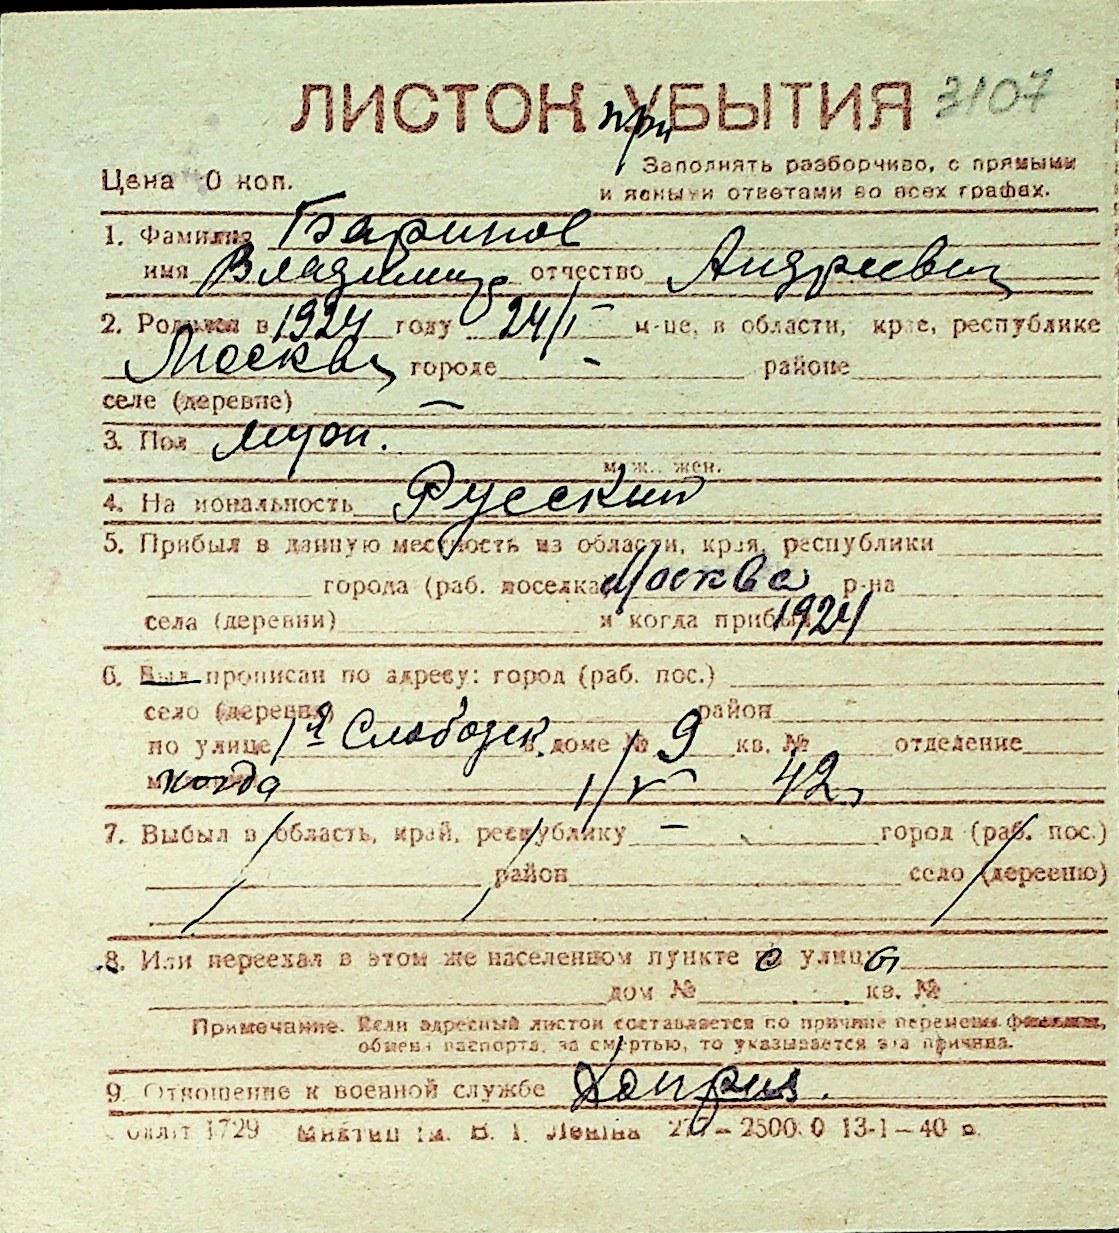 ЛИСТОК при УБЫТИЯ 3107
Заполнять разборчиво, с прямыми
Цена 0 коп. и ясными ответами во всех графах.
1. Фамилия Баринов
имя Владимир отчество Андреевич
2. Родился в 1924 году 24/I м-це, в области, крае, республике
Москва, городе – районе
селе (деревне) –
3. Пол муж.
муж., жен.
4. Национальность Русский
5. Прибыл в данную местность из области, края, республики
города (раб. поселка) Москва р-на
села (деревни) и когда прибыл 1924
6. Был прописан по адресу: город (раб. пос.)
село (деревня) район
по улице 1я Слободск. в доме № 9 кв. № отделение
когда 1/V 42
7. Выбыл в область, край, республику – город (раб. пос.)
район село (деревню)
8. Или переехал в этом же населенном пункте с улицы
дом № кв. №
Примечание. Если адресный листок составляется по причине перемены фамилии,
обмена паспорта, за смертью, то указывается эта причина.
9. Отношение к военной службе Допризв.
1729 им. В. И. Ленина 13-1–40 г.